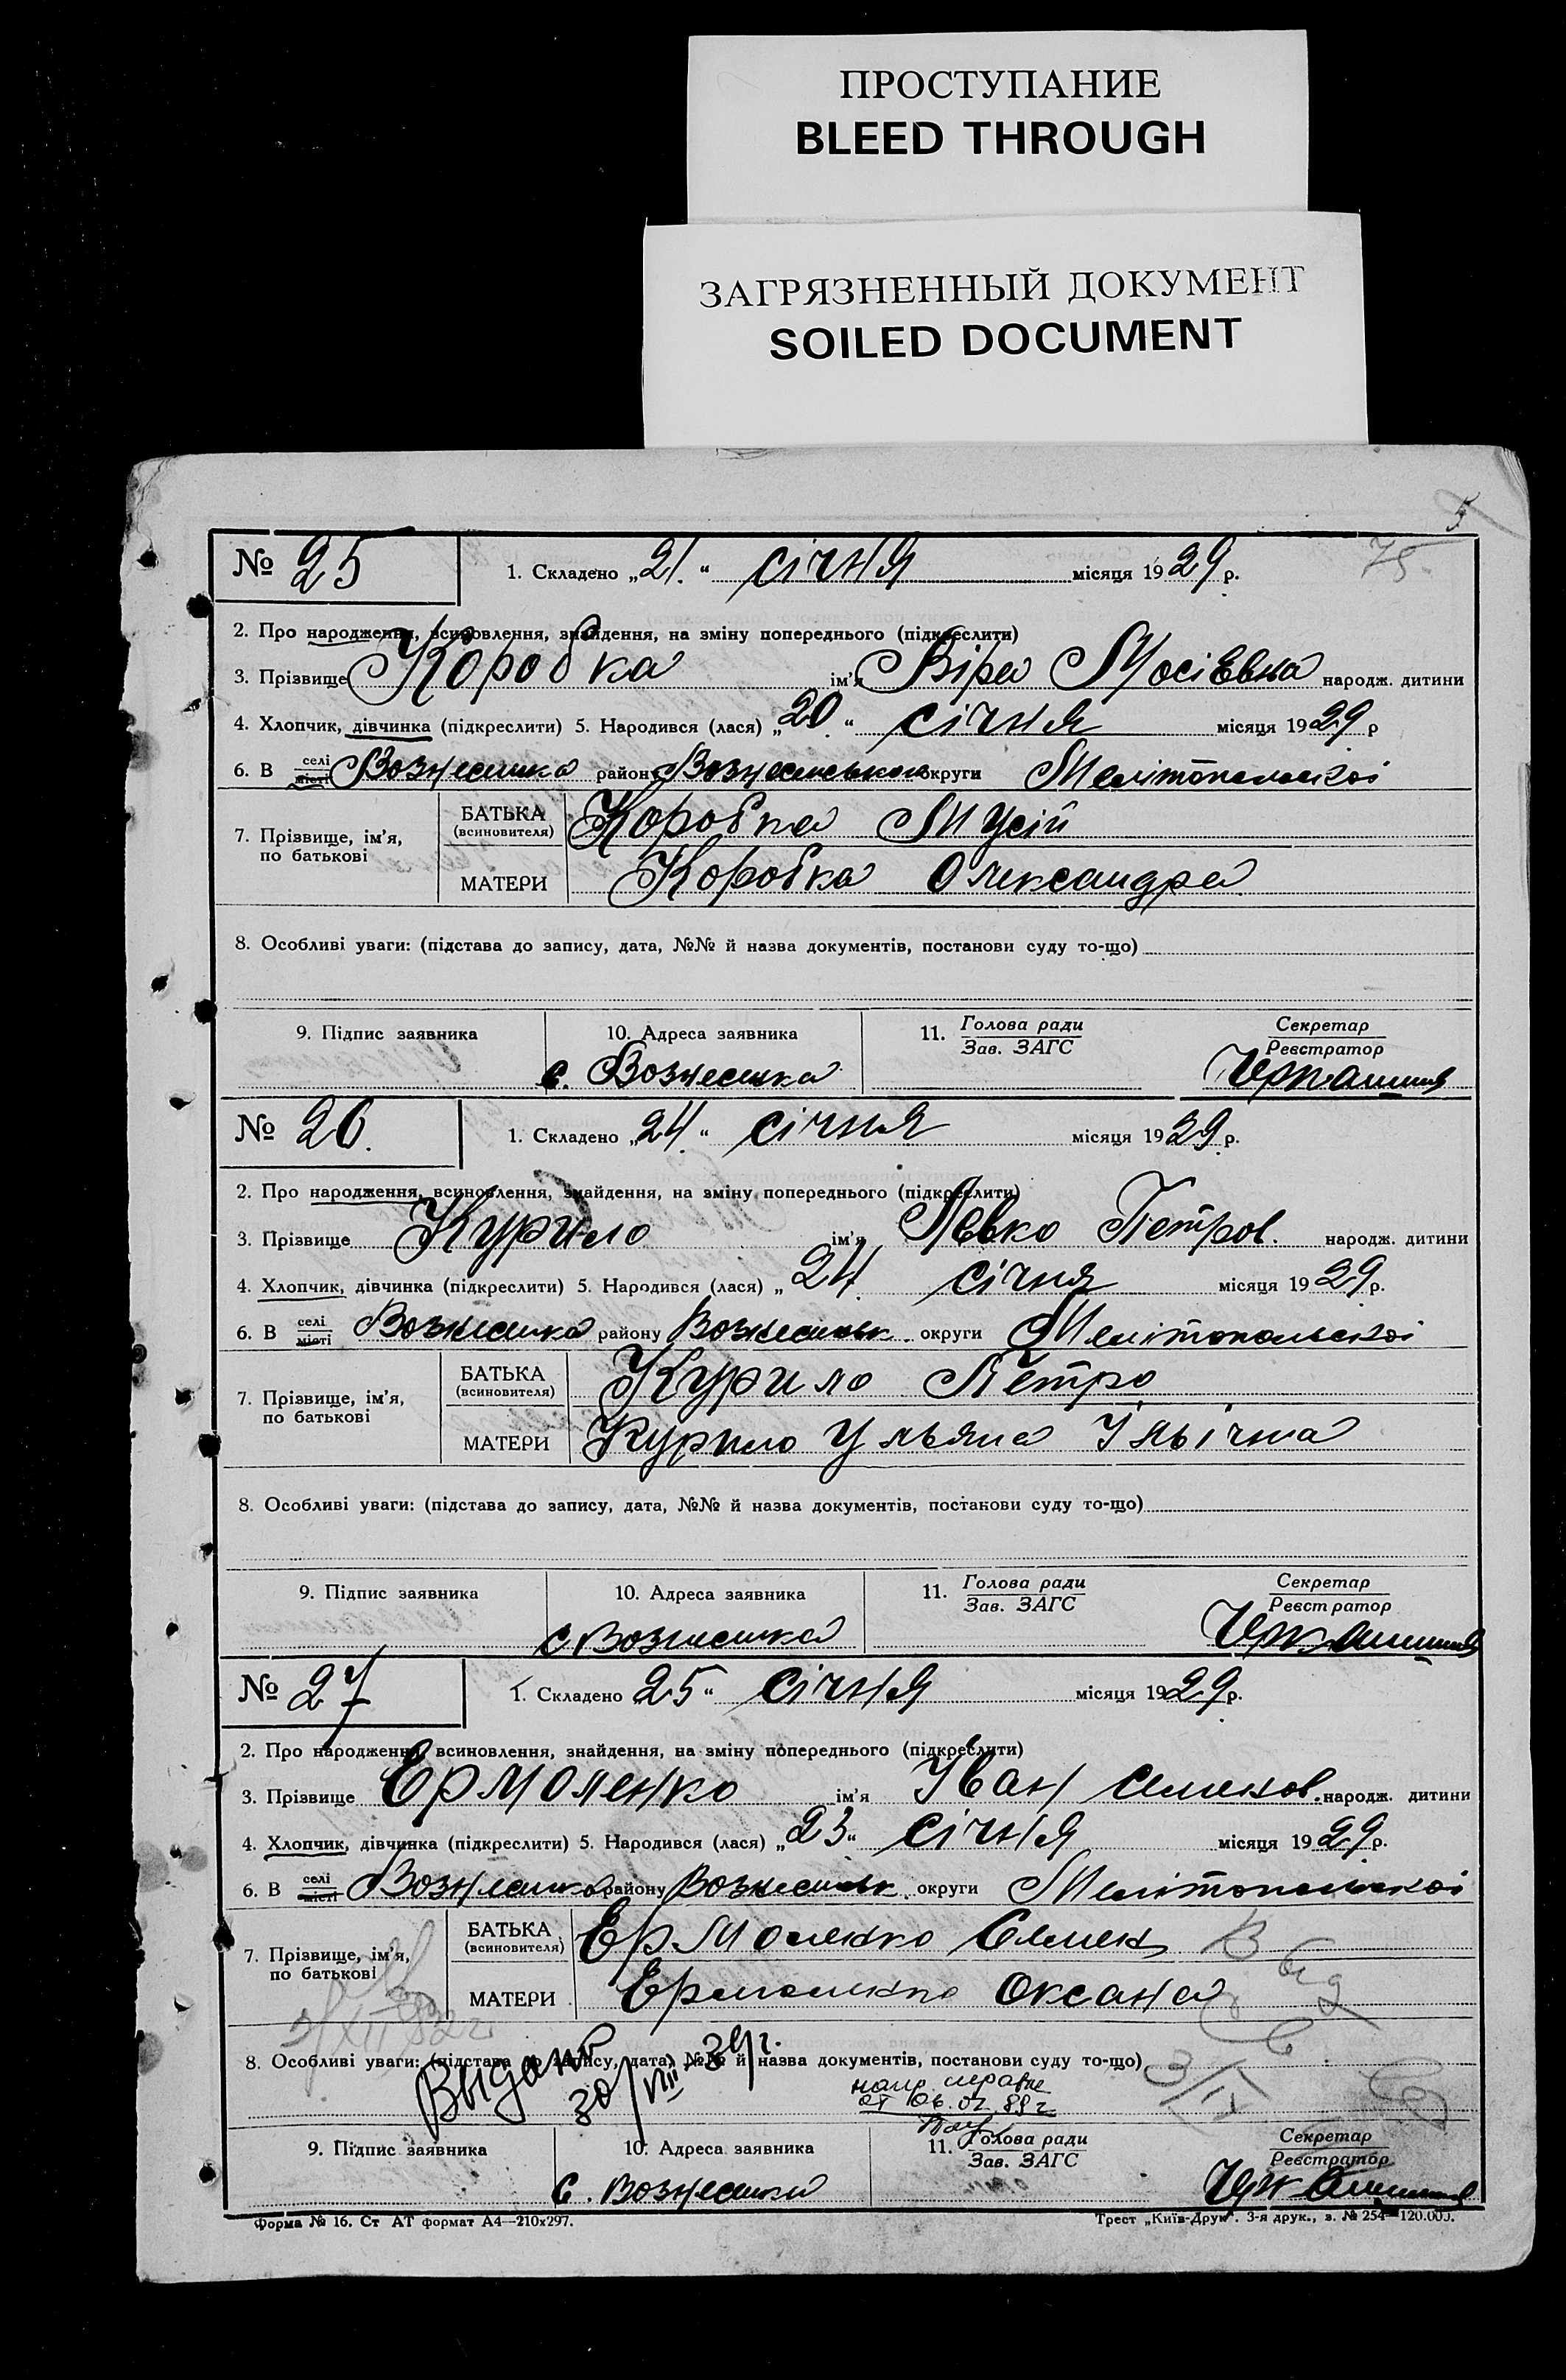 ПРОСТУПАНИЕ
BLEED THROUGH
ЗАГРЯЗНЕННЫЙ ДОКУМЕНТ
SOILED DOCUMENT
5
75
№ 25 1. Складено „21.“ січня місяця 1929 р.
2. Про народження, всиновлення, знайдення, на зміну попереднього (підкреслити)
3. Прізвище Коробка ім'я Віра Мосіевна народж. дитини
4. Хлопчик, дівчинка (підкреслити) 5. Народився (лася) „20“ січня місяця 1929 р
6. В селі місті Вознесенка району Вознесенськои округи Мелітопольскоі
7. Прізвище, ім'я, по батькові БАТЬКА (всиновителя) Коробка Мусій
МАТЕРИ Коробка Олександра
8. Особливі уваги: (підстава до запису, дата, №№ й назва документів, постанови суду то-що)
9. Підпис заявника 10. Адреса заявника 11. Голова ради Зав. ЗАГС Секретар Реєстратор
с. Вознесенка
№ 26. 1. Складено „24.“ січня місяця 1929 р.
2. Про народження, всиновлення, знайдення, на зміну попереднього (підкреслити)
3. Прізвище Курило ім'я Левко Петров. народж. дитини
4. Хлопчик, дівчинка (підкреслити) 5. Народився (лася) „24. січня місяця 1929 р.
6. В селі місті Вознесенка району Вознесенськ. округи Мелітопольскоі
7. Прізвище, ім'я, по батькові БАТЬКА (всиновителя) Курило Петро
МАТЕРИ Курило Ульяна Ільічна
8. Особливі уваги: (підстава до запису, дата, №№ й назва документів, постанови суду то-що)
9. Підпис заявника 10. Адреса заявника 11. Голова ради Зав. ЗАГС Секретар Реєстратор
с Вознесенка
№ 27 1. Складено 25“ січня місяця 1929 р.
2. Про народження, всиновлення, знайдення, на зміну попереднього (підкреслити)
3. Прізвище Ермоленко ім'я Іван Семенов. народж. дитини
4. Хлопчик, дівчинка (підкреслити) 5. Народився (лася) „23“ січня місяця 1929 р.
6. В селі місті Вознесенка району Вознесенськ. округи Мелітопольскоі
7. Прізвище, ім'я, по батькові БАТЬКА (всиновителя) Ермоленко Семен
МАТЕРИ Ермоленко Оксана
8. Особливі уваги: (підстава до запису, дата, №№ й назва документів, постанови суду то-що)
Выдано 30/VIII 39 г.
от 06.02.89 г
9. Підпис заявника 10. Адреса заявника 11. Голова ради Зав. ЗАГС Секретар Реєстратор
с. Вознесенка
Форма № 16. Ст АТ формат А4—210x297. Трест „Київ-Друк“. 3-я друк., з. № 254—120.000.